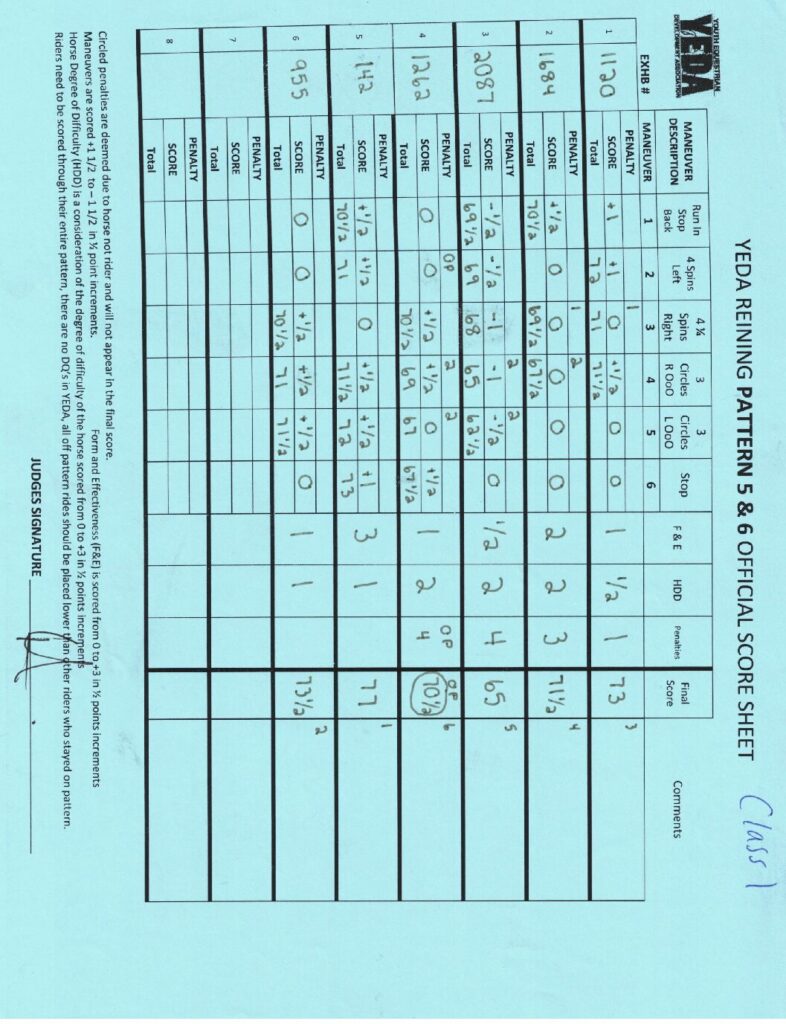 YOUTH EQUESTRIAN
YEDA
DEVELOPMENT ASSOCIATION
YEDA REINING PATTERN 5 & 6 OFFICIAL SCORE SHEET Class 1
MANEUVER DESCRIPTION Run In Stop Back 4 Spins Left 4 ¼ Spins Right 3 Circles R OoO 3 Circles L OoO Stop F & E HDD Penalties Final Score Comments
EXHB # MANEUVER 1 2 3 4 5 6
1 1120 PENALTY 1
SCORE +1 +1 0 +1/2 0 0 1 1/2 1 73 3
Total 72 71 71 1/2
2 1684 PENALTY 1 2
SCORE +1/2 0 0 0 0 0 2 2 3 71 1/2 4
Total 70 1/2 69 1/2 67 1/2
3 2087 PENALTY 2 2
SCORE -1/2 -1/2 -1 -1 -1/2 0 1/2 2 4 65 5
Total 69 1/2 69 68 65 62 1/2
4 1262 PENALTY OP 2 2 OP OP
SCORE 0 0 +1/2 +1/2 0 +1/2 1 2 4 70 1/2 6
Total 70 1/2 69 67 67 1/2
5 142 PENALTY
SCORE +1/2 +1/2 0 +1/2 +1/2 +1 3 1 77 1
Total 70 1/2 71 71 1/2 72 73
6 955 PENALTY
SCORE 0 0 +1/2 +1/2 +1/2 0 1 1 73 1/2 2
Total 70 1/2 71 71 1/2
7 PENALTY
SCORE
Total
8 PENALTY
SCORE
Total
Circled penalties are deemed due to horse not rider and will not appear in the final score.
Maneuvers are scored +1 1/2 to – 1 1/2 in ½ point increments. Form and Effectiveness (F&E) is scored from 0 to +3 in ½ points increments
Horse Degree of Difficulty (HDD) is a consideration of the degree of difficulty of the horse scored from 0 to +3 in ½ points increments
Riders need to be scored through their entire pattern, there are no DQ's in YEDA, all off pattern rides should be placed lower than other riders who stayed on pattern.
JUDGES SIGNATURE